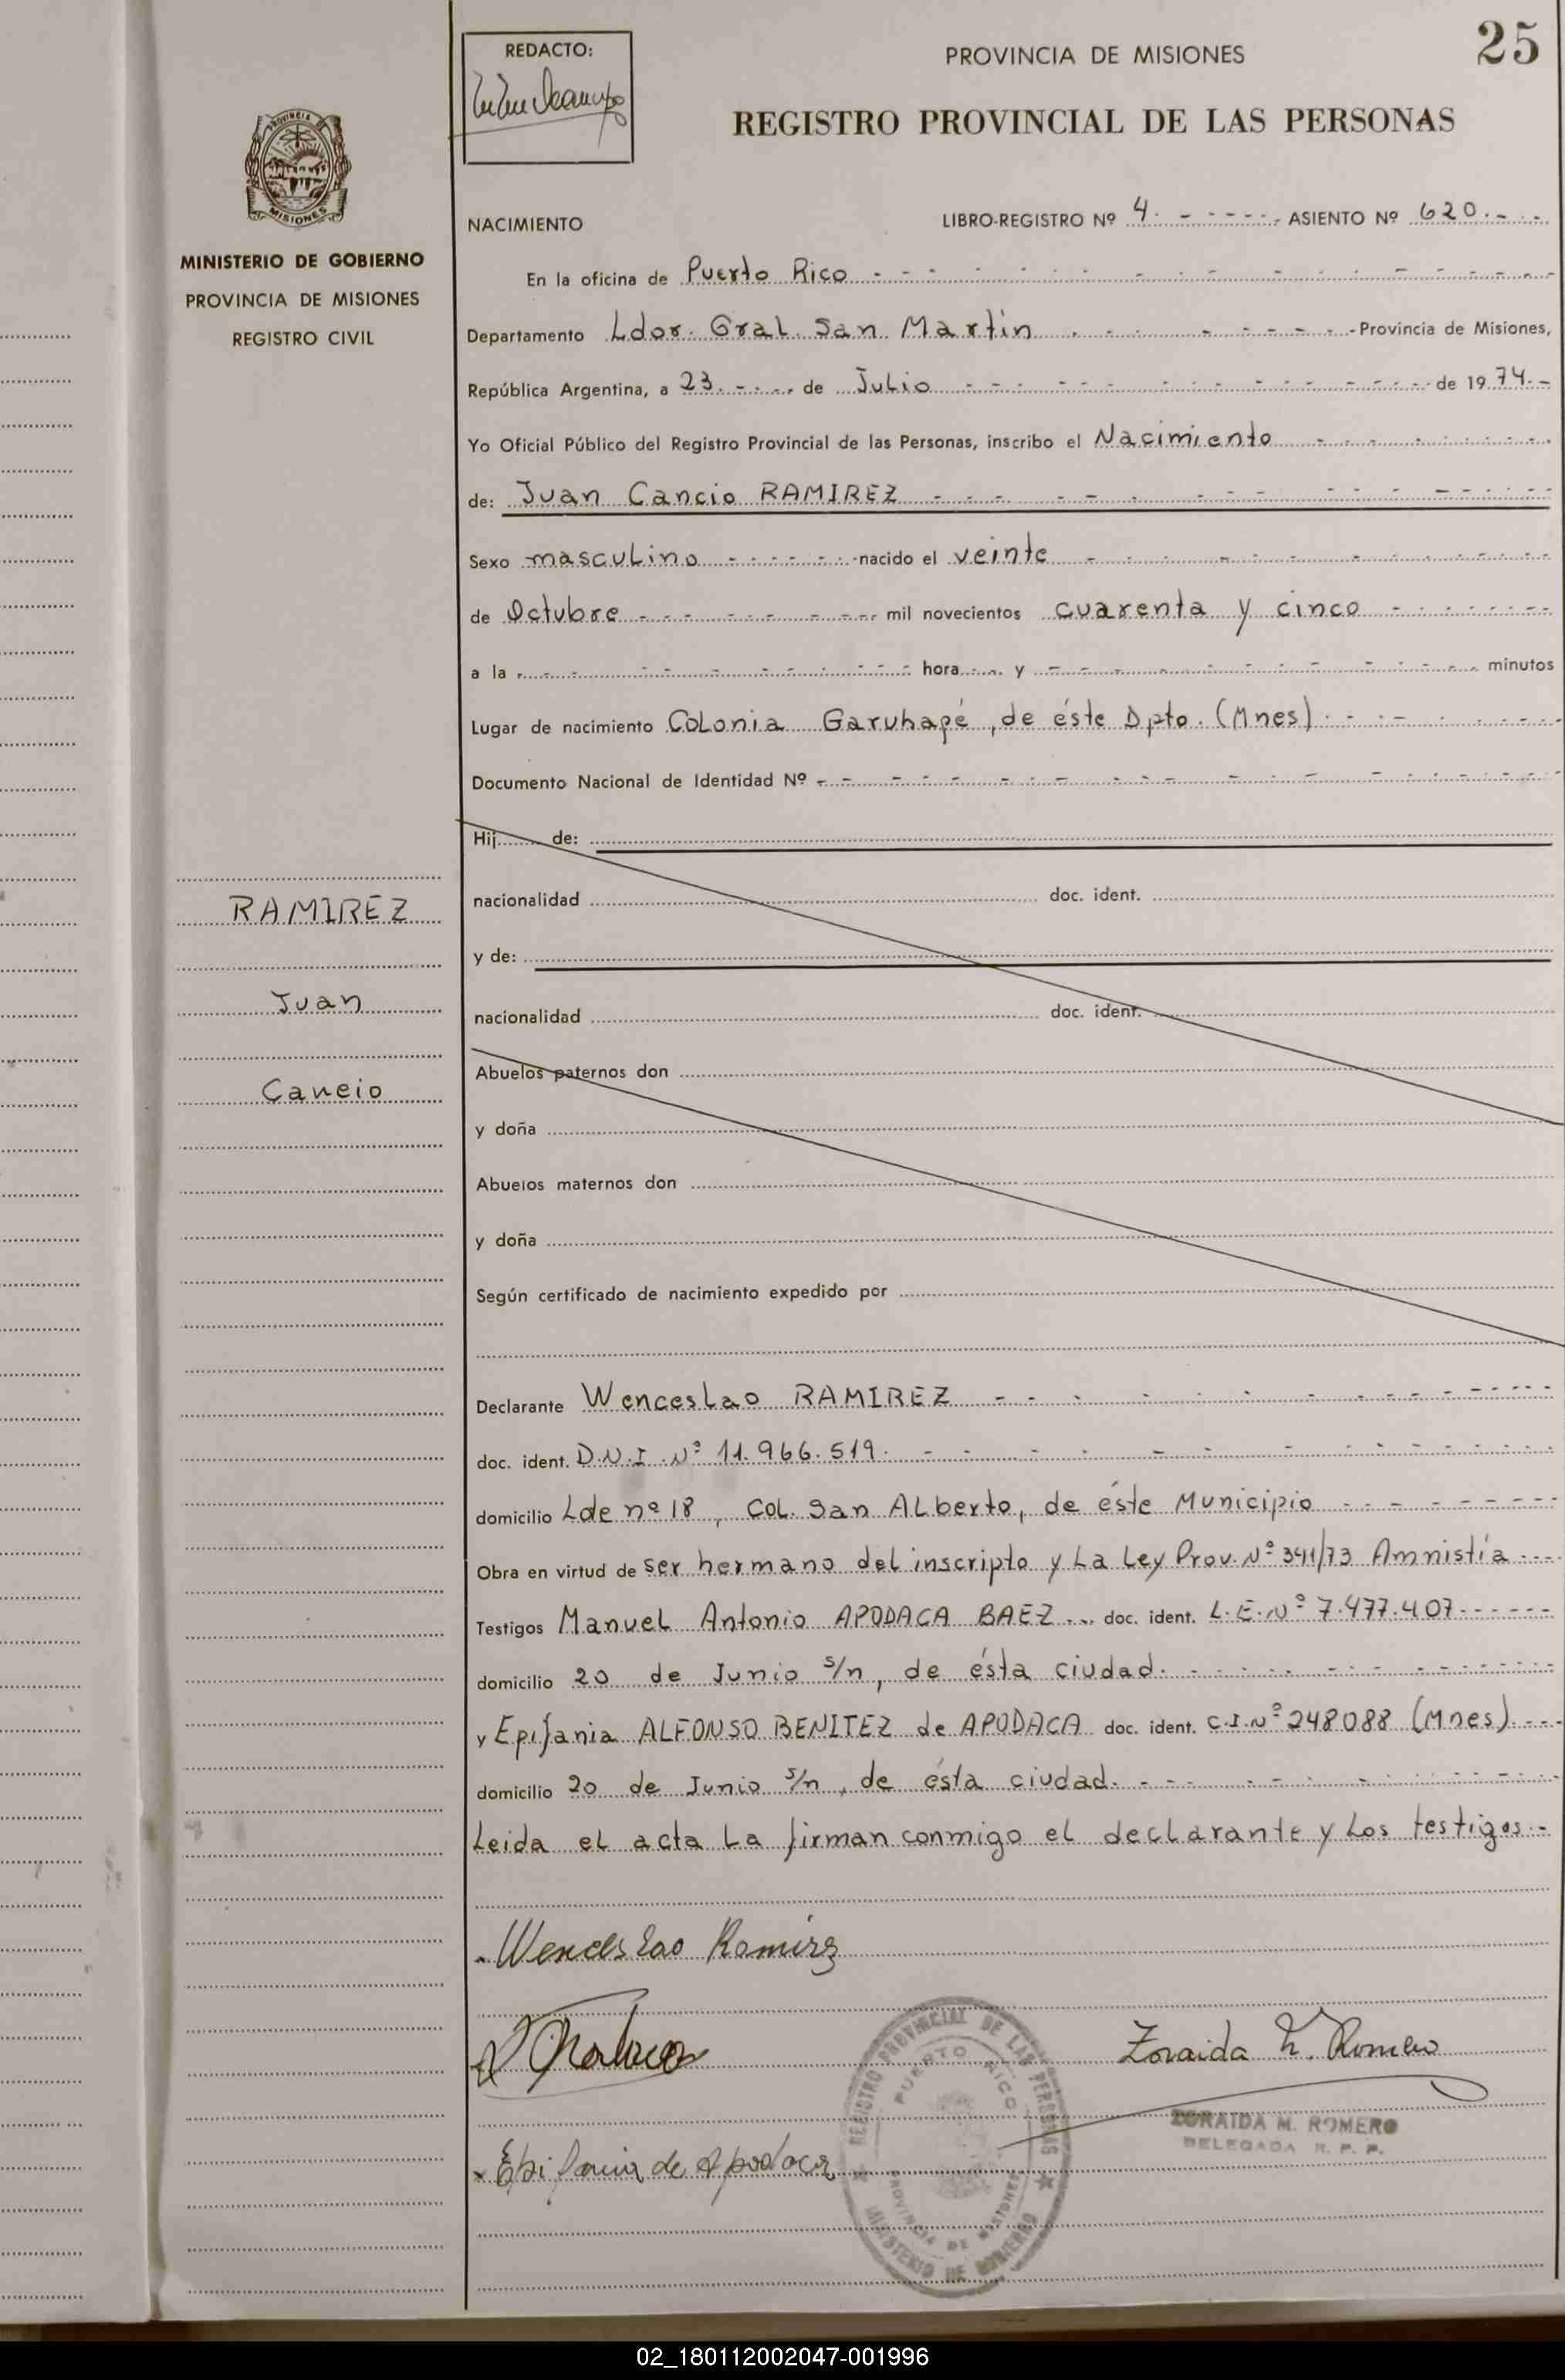 25
REDACTO:
PROVINCIA DE MISIONES
REGISTRO PROVINCIAL DE LAS PERSONAS
MISIONES
MINISTERIO DE GOBIERNO
PROVINCIA DE MISIONES
REGISTRO CIVIL
NACIMIENTO
LIBRO-REGISTRO Nº 4. ASIENTO Nº 620.
En la oficina de Puerto Rico
Departamento Ldor. Gral. San Martín Provincia de Misiones,
República Argentina, a 23. de Julio de 19 74.-
Yo Oficial Público del Registro Provincial de las Personas, inscribo el Nacimiento
de: Juan Cancio RAMIREZ
Sexo masculino nacido el veinte
de Octubre mil novecientos cuarenta y cinco
a la hora y minutos
Lugar de nacimiento Colonia Garuhapé, de éste Dpto. (Mnes).
Documento Nacional de Identidad Nº
Hij de:
nacionalidad doc. ident.
y de:
nacionalidad doc. ident.
Abuelos paternos don
y doña
Abuelos maternos don
y doña
Según certificado de nacimiento expedido por
RAMIREZ
Juan
Cancio
Declarante Wenceslao RAMIREZ
doc. ident. D.N.I. Nº 11.966.519.
domicilio Lde nº 18, Col. San Alberto, de éste Municipio
Obra en virtud de ser hermano del inscripto y La Ley Prov. Nº 341/73 Amnistía
Testigos Manuel Antonio APODACA BAEZ doc. ident. L.E. Nº 7.477.407
domicilio 20 de Junio s/n, de ésta ciudad.
y Epifania ALFONSO BENITEZ de APODACA doc. ident. C.I. Nº 248088 (Mnes).
domicilio 20 de Junio s/n, de ésta ciudad.
Leida el acta La firman conmigo el declarante y Los testigos.-
Wenceslao Ramirez
Zoraida M. Romero
ZORAIDA M. ROMERO
DELEGADA R. P. P.
Epifania de Apodaca
REGISTRO PROVINCIAL DE LAS PERSONAS
PUERTO RICO
PROVINCIA DE MISIONES
MINISTERIO DE GOBIERNO
02_180112002047-001996